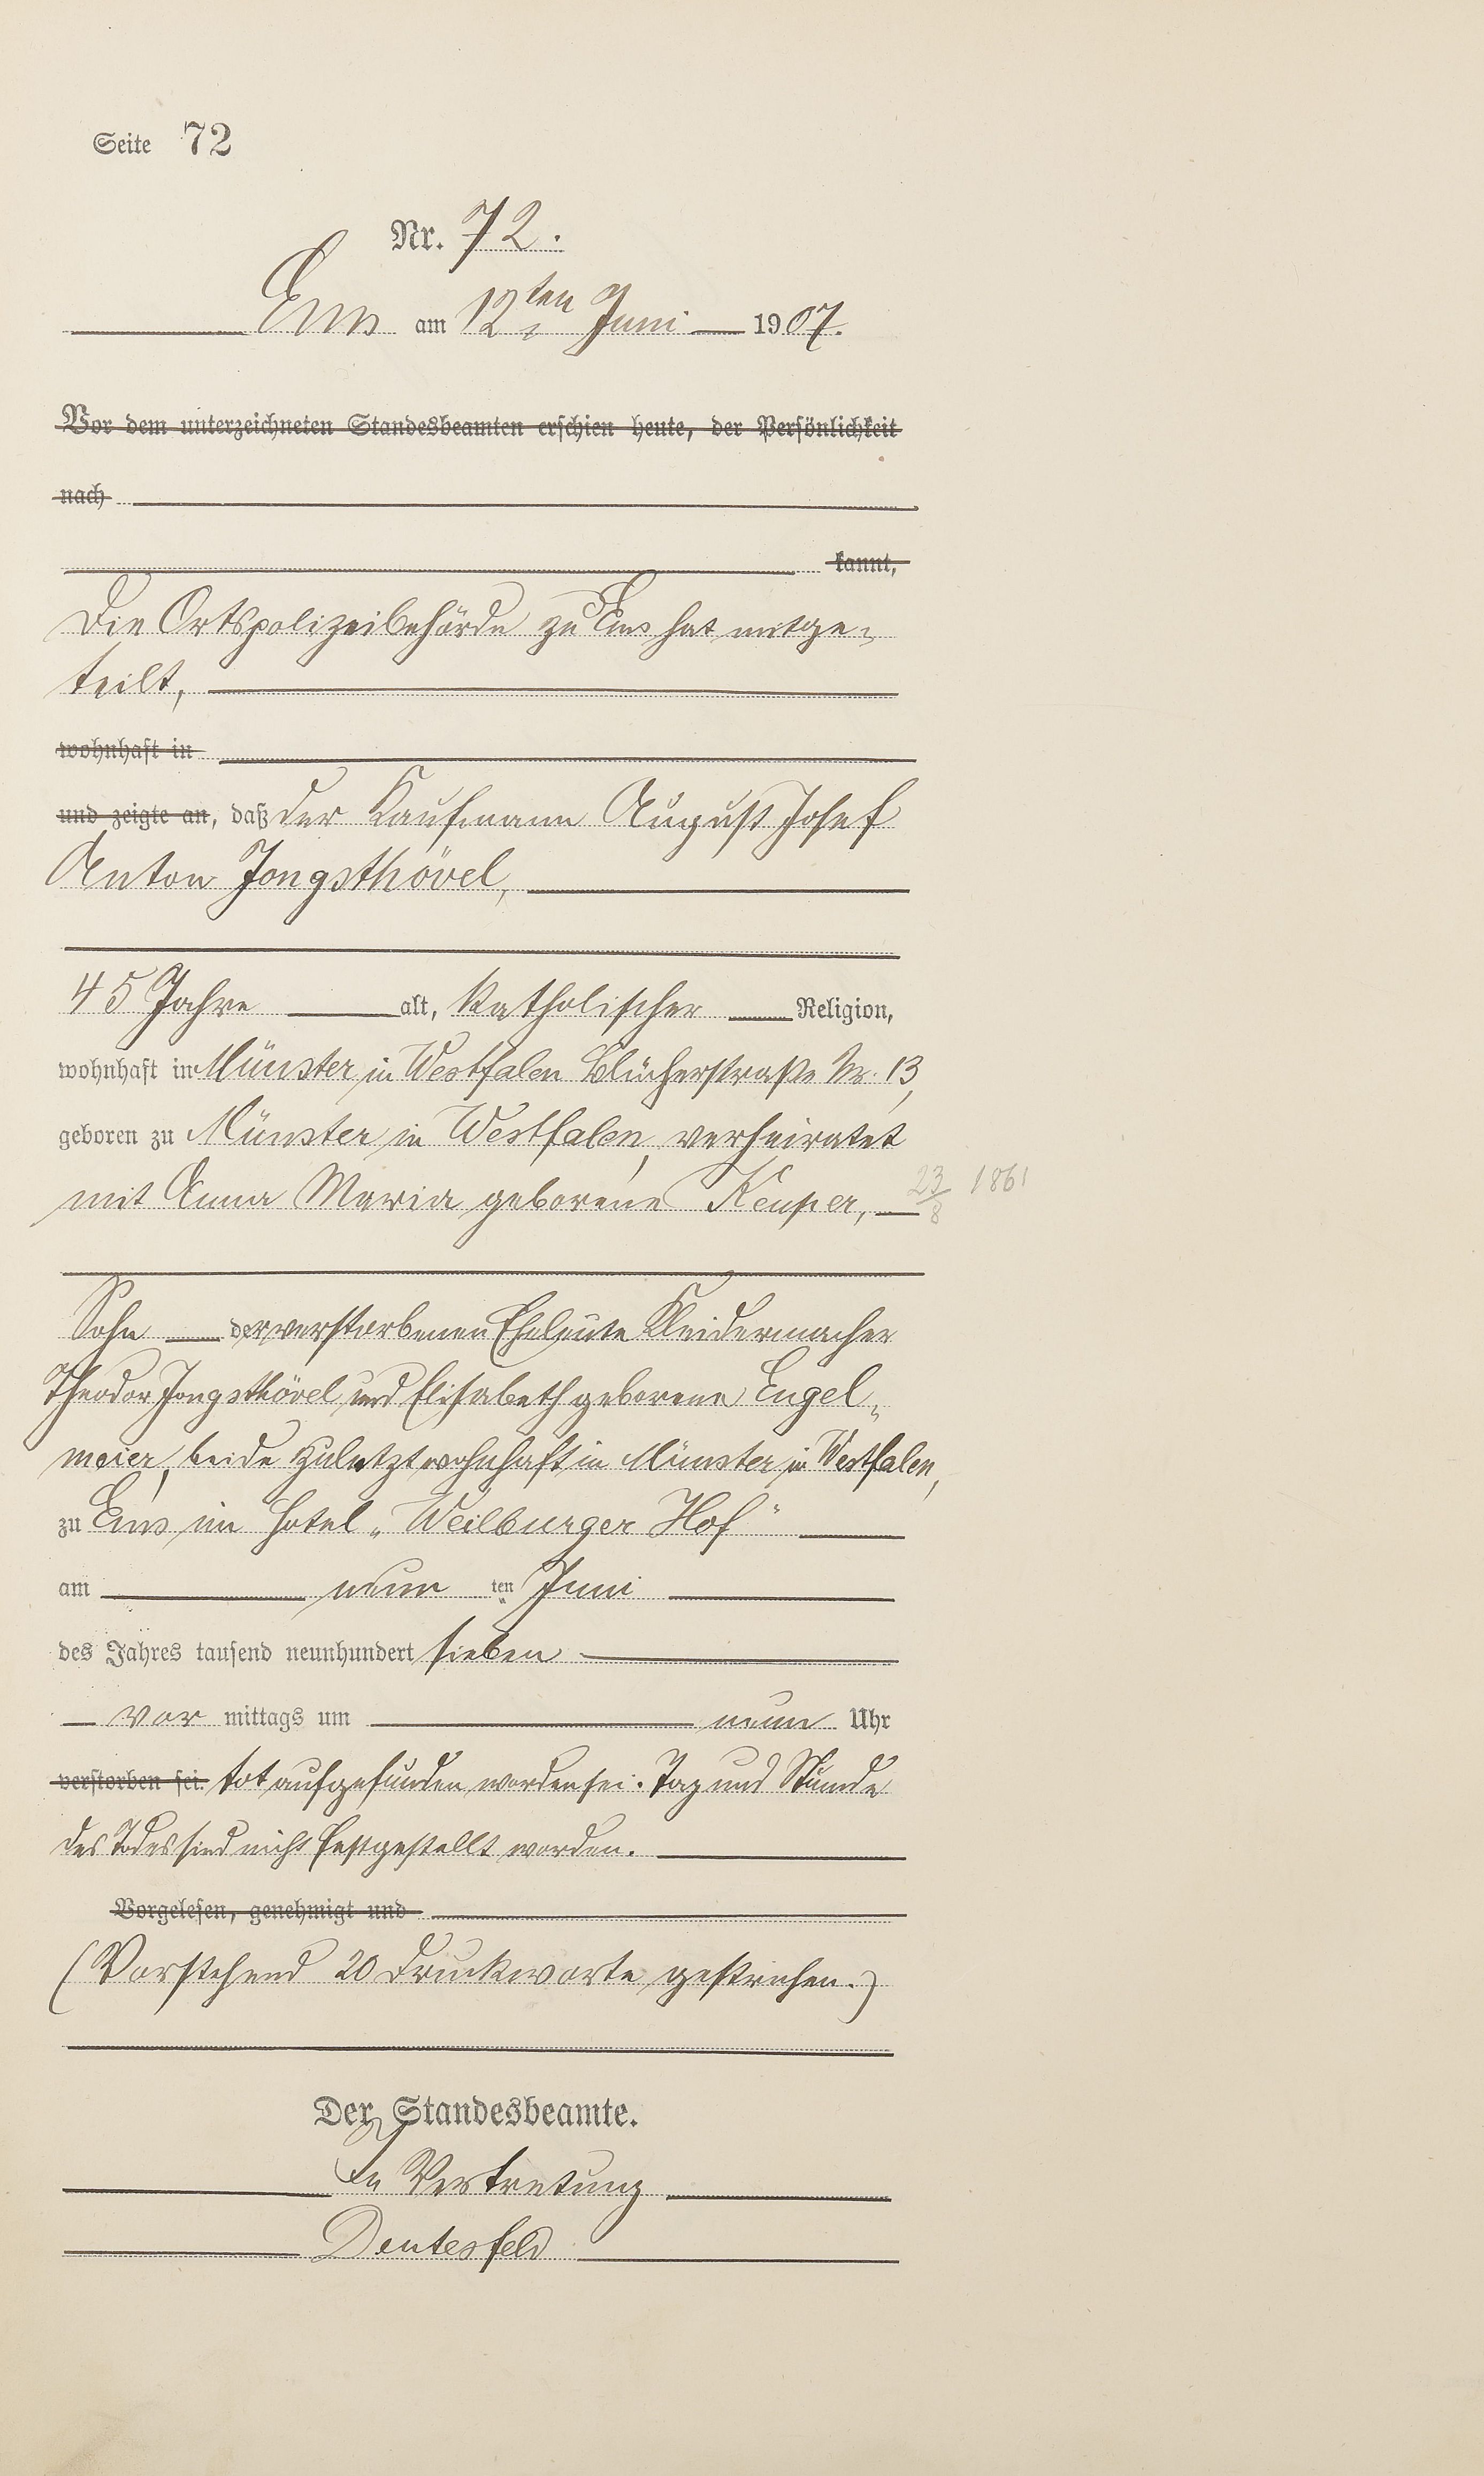 Seite 72
Nr. 72.
Ems am 12ten Juni 1907.
Vor dem unterzeichneten Standesbeamten erschien heute, der Persönlichkeit
nach
kannt,
Die Ortspolizeibehörde zu Ems hat mitge-
teilt,
wohnhaft in
und zeigte an, daß der Kaufmann August Josef
Anton Jongsthövel,
45 Jahre alt, katholischer Religion,
wohnhaft in Münster in Westfalen Blücherstraße Nr. 13,
geboren zu Münster in Westfalen, verheiratet
mit Anna Maria geborene Kemper, 23/8 1861
Sohn der verstorbenen Eheleute Kleidermacher
Theodor Jongsthövel und Elisabeth geborene Engel-
meier, beide zuletzt wohnhaft in Münster in Westfalen,
zu Ems im Hotel „Weilburger Hof"
am neun ten Juni
des Jahres tausend neunhundert sieben
vor mittags um neun Uhr
verstorben sei. tot aufgefunden worden sei. Tag und Stunde
des Todes sind nicht festgestellt worden.
Vorgelesen, genehmigt und
(Vorstehend 20 Druckworte gestrichen.)
Der Standesbeamte.
In Vertretung
Deutesfeld